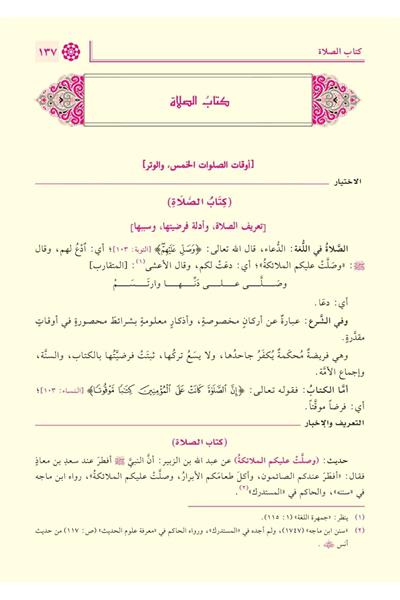 كتاب الصلاة
١٣٧
كتابُ الصلاة
[أوقات الصلوات الخمس، والوتر]
الاختيار
(كِتَابُ الصَّلاةِ)
[تعريف الصلاة، وأدلة فرضيتها، وسببها]
الصَّلاةُ في اللُّغة: الدُّعاء، قال الله تعالى: ﴿وَصَلِّ عَلَيْهِمْ﴾ [التوبة: ١٠٣]؛ أي: ادْعُ لهم، وقال
ﷺ: «وصَلَّتْ عليكم الملائكةُ»؛ أي: دعَتْ لكم، وقال الأعشى(١): [المتقارب]
وصَـلَّـى عـلـى دَنِّـهـا وارتَـسَـمْ
أي: دعَا.
وفي الشَّرع: عبارةٌ عن أركانٍ مخصوصةٍ، وأذكارٍ معلومةٍ بشرائطَ محصورةٍ في أوقاتٍ
مقدَّرةٍ.
وهي فريضةٌ مُحكَمةٌ يُكفَّرُ جاحدُها، ولا يسَعُ تركُها، ثبتَتْ فرضيَّتُها بالكتاب، والسنَّة،
وإجماعِ الأمَّة.
أمَّا الكتابُ: فقوله تعالى: ﴿إِنَّ الصَّلَوٰةَ كَانَتْ عَلَى الْمُؤْمِنِينَ كِتَٰبًا مَّوْقُوتًا﴾ [النساء: ١٠٣]؛
أي: فرضاً موقَّتاً.
التعريف والإخبار
(كتاب الصلاة)
حديث: (وصلَّتْ عليكم الملائكةُ) عن عبد الله بن الزبير: أنَّ النبيَّ ﷺ أفطرَ عند سعدِ بن معاذٍ
فقال: «أفطرَ عندكم الصائمون، وأكلَ طعامَكم الأبرارُ، وصلَّتْ عليكم الملائكةُ»، رواه ابن ماجه
في «سننه»، والحاكم في «المستدرك»(٢).
(١) ينظر: «جمهرة اللغة» (١: ١١٥).
(٢) «سنن ابن ماجه» (١٧٤٧)، ولم أجده في «المستدرك»، ورواه الحاكم في «معرفة علوم الحديث» (ص: ١١٧) من حديث
أنس رضي الله عنه.